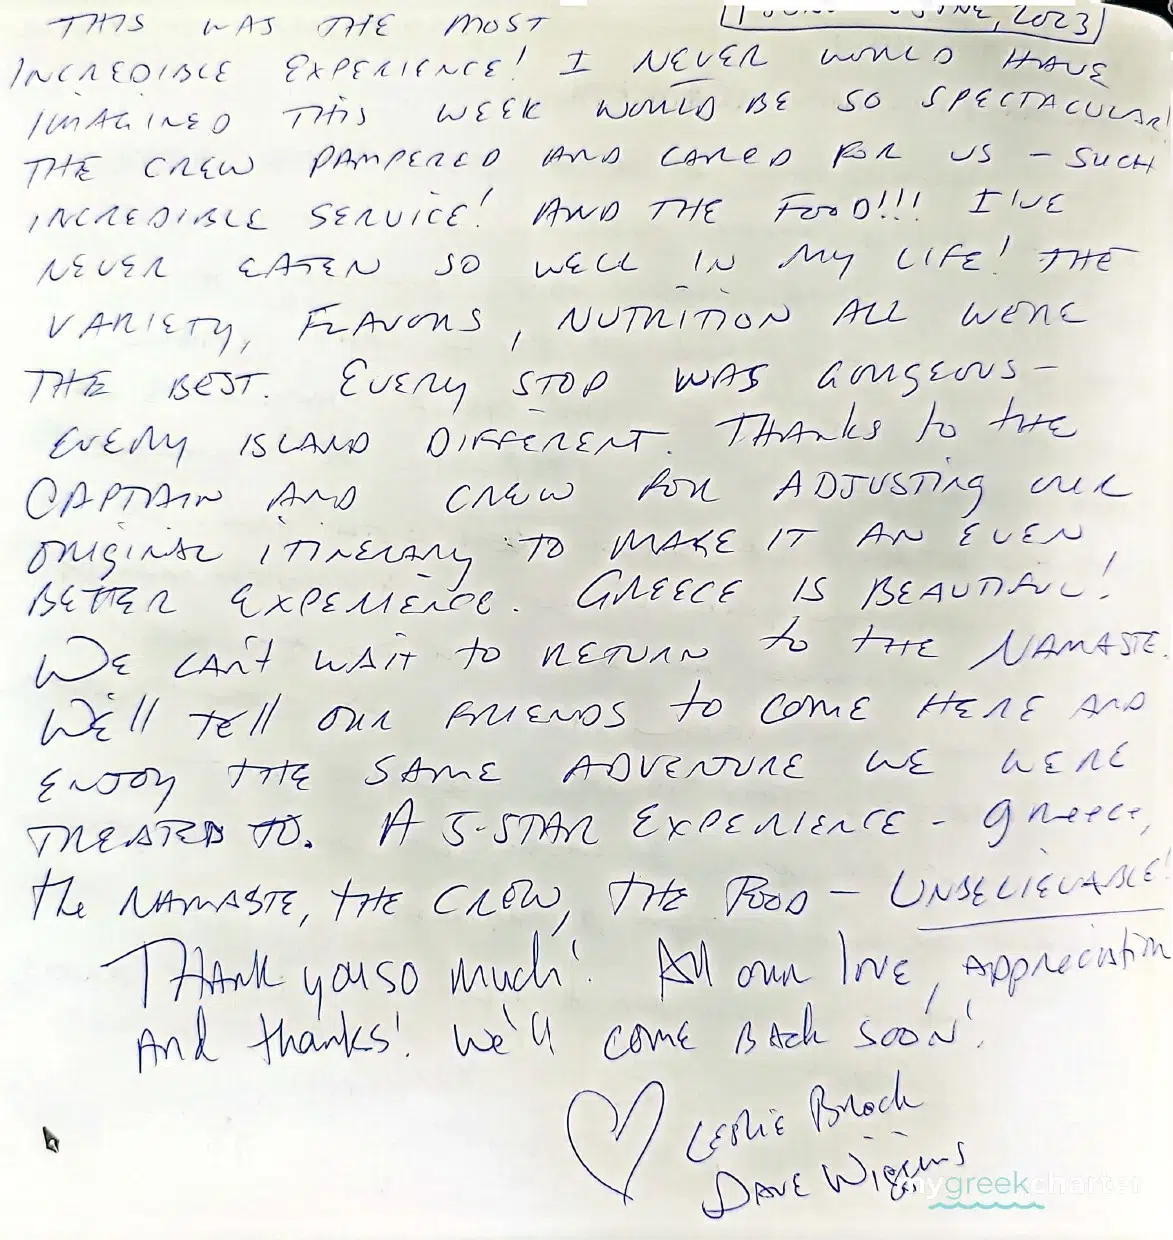 JUNE, 2023
THIS WAS THE MOST
INCREDIBLE EXPERIENCE! I NEVER WOULD HAVE
IMAGINED THIS WEEK WOULD BE SO SPECTACULAR!
THE CREW PAMPERED AND CARED FOR US – SUCH
INCREDIBLE SERVICE! AND THE FOOD!!! I'VE
NEVER EATEN SO WELL IN MY LIFE! THE
VARIETY, FLAVORS, NUTRITION ALL WERE
THE BEST. EVERY STOP WAS GORGEOUS –
EVERY ISLAND DIFFERENT. THANKS to tHE
CAPTAIN AND CREW FOR ADJUSTING OUR
ORIGINAL ITINERARY TO MAKE IT AN EVEN
BETTER EXPERIENCE. GREECE IS BEAUTIFUL!
WE CAN'T WAIT to RETURN to tHE NAMASTE.
WE'll tEll OUR FRIENDS to COME HERE AND
ENJOY THE SAME ADVENTURE WE WERE
TREATED TO. A 5-STAR EXPERIENCE – greece,
the NAMASTE, tHE CREW, THE FOOD – UNBELIEVABLE!
THANK you so much! All our love, APPreciAtion
And thanks! We'll COME BACk SOON!
LESLIE BROCK
DAVE WIGGINS
mygreekcharter